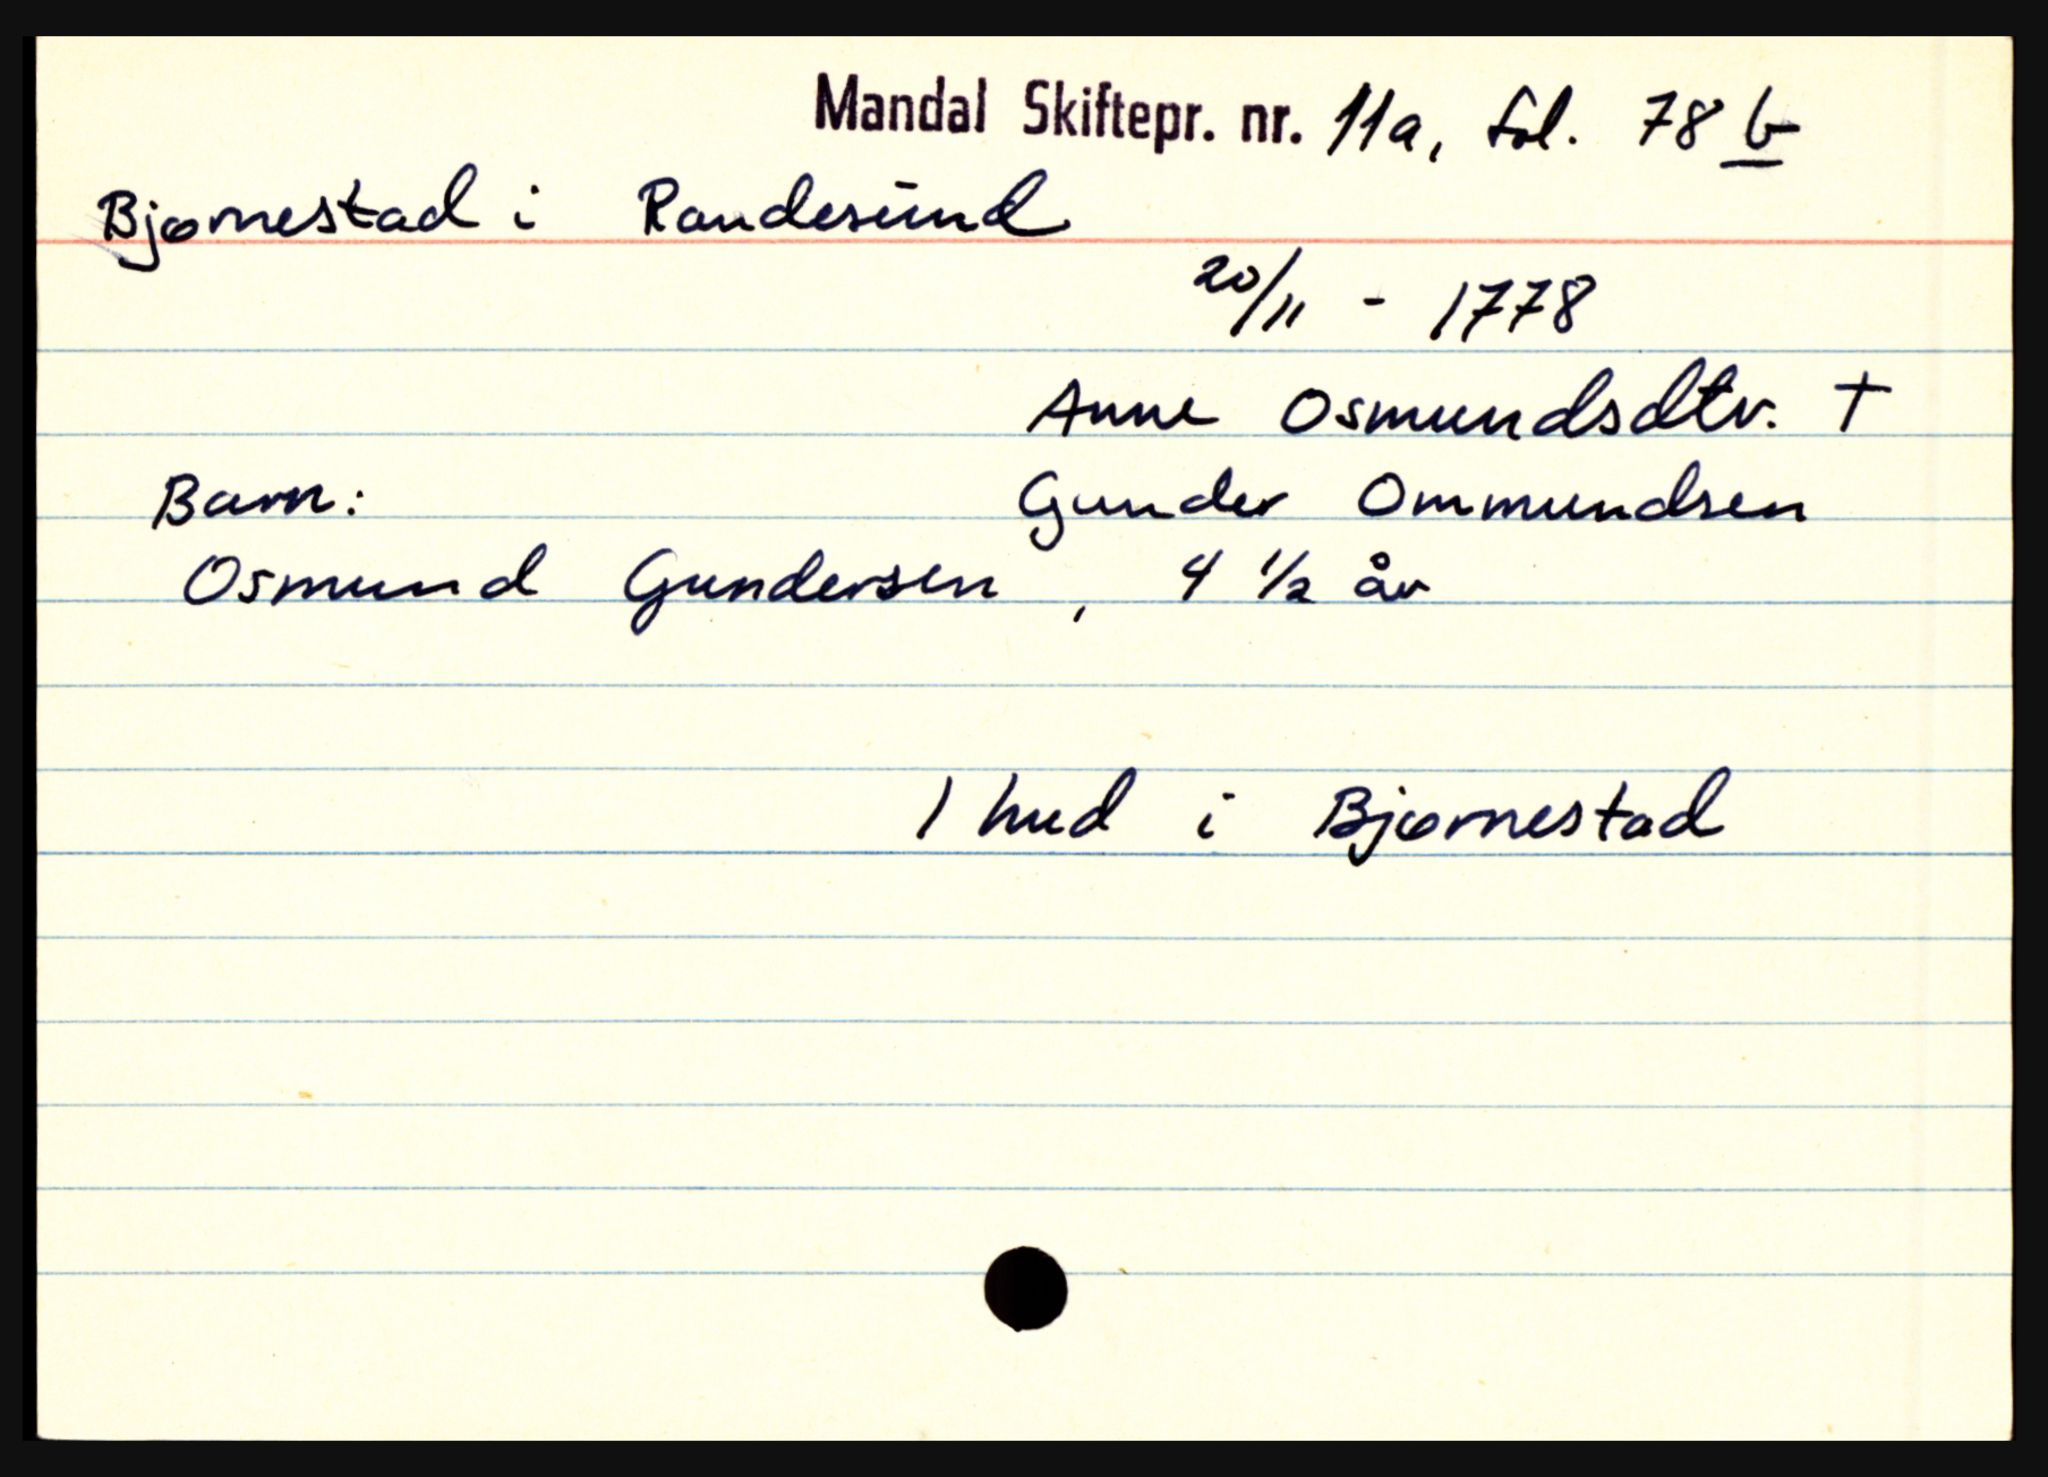 Mandal Skiftepr. nr. 11a, fol. 78 b
Bjørnestad i Randesund
20/11 - 1778
Anne Osmundsdtr. †
Barn: Gunder Ommundsen
Osmund Gundersen, 4 1/2 år
1 hud i Bjørnestad